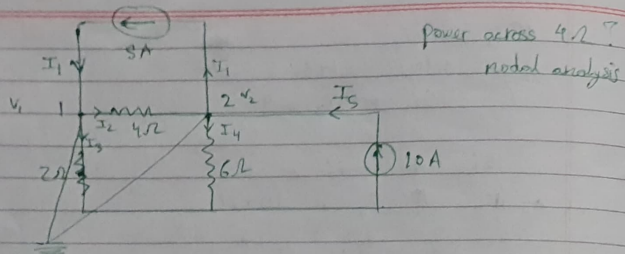 power across 4Ω ?
nodal analysis
5A
I₁
I₁
V₁ 1
I₂
4Ω
2 V₂
I₅
I₃
I₄
2Ω
6Ω
10A